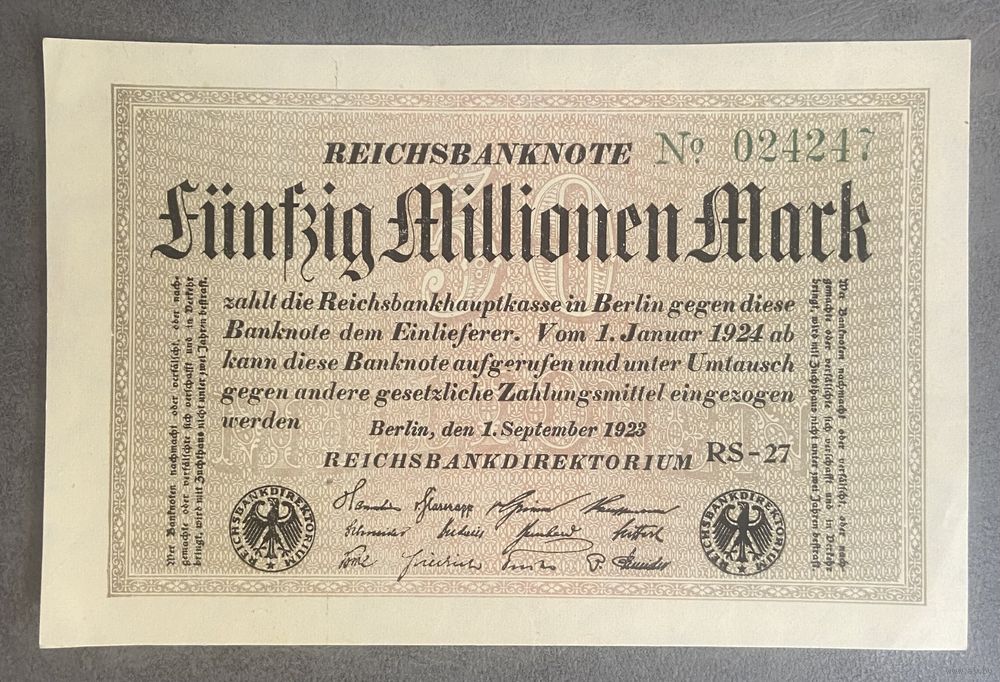 REICHSBANKNOTE № 024247
50
Fünfzig Millionen Mark
zahlt die Reichsbankhauptkasse in Berlin gegen diese
Banknote dem Einlieferer. Vom 1. Januar 1924 ab
kann diese Banknote aufgerufen und unter Umtausch
gegen andere gesetzliche Zahlungsmittel eingezogen
werden
Berlin, den 1. September 1923
REICHSBANKDIREKTORIUM RS-27
Wer Banknoten nachmacht oder verfälscht, oder nach-
gemachte oder verfälschte sich verschafft und in Verkehr
bringt, wird mit Zuchthaus nicht unter zwei Jahren bestraft.
Wer Banknoten nachmacht oder verfälscht, oder nach-
gemachte oder verfälschte sich verschafft und in Verkehr
bringt, wird mit Zuchthaus nicht unter zwei Jahren bestraft.
REICHSBANKDIREKTORIUM
REICHSBANKDIREKTORIUM
v. Glasenapp
Schneider
Friedrich
P. Schneider